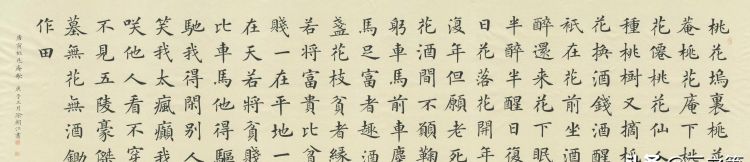 桃花塢裏桃花
菴桃花菴下桃
花僊桃花仙人
種桃樹又摘桃
花換酒錢酒醒
衹在花前坐酒
醉還來花下眠
半醉半醒日復
日花落花開年
復年但願老死
花酒間不願鞠
躬車馬前車塵
馬足富者趣酒
盞花枝貧者緣
若將富貴比貧
賤一在平地一
在天若將貧賤
比車馬他得驅
馳我得閒別人
笑我太瘋癲我
咲他人看不穿
不見五陵豪傑
墓無花無酒鋤
作田
唐寅桃花庵歌